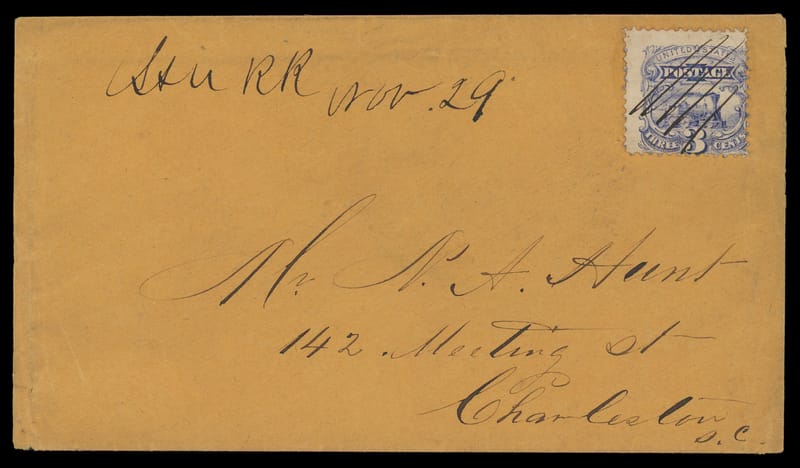 S & U RR Nov. 29
UNITED STATES
POSTAGE
THREE 3 CENTS
Mr. N. A. Hunt
142. Meeting st
Charleston
S. C.